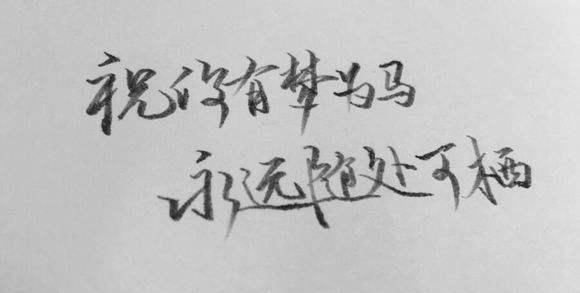 祝你有梦为马
永远随处可栖